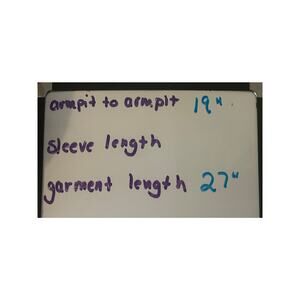 armpit to armpit 19"
sleeve length
garment length 27"